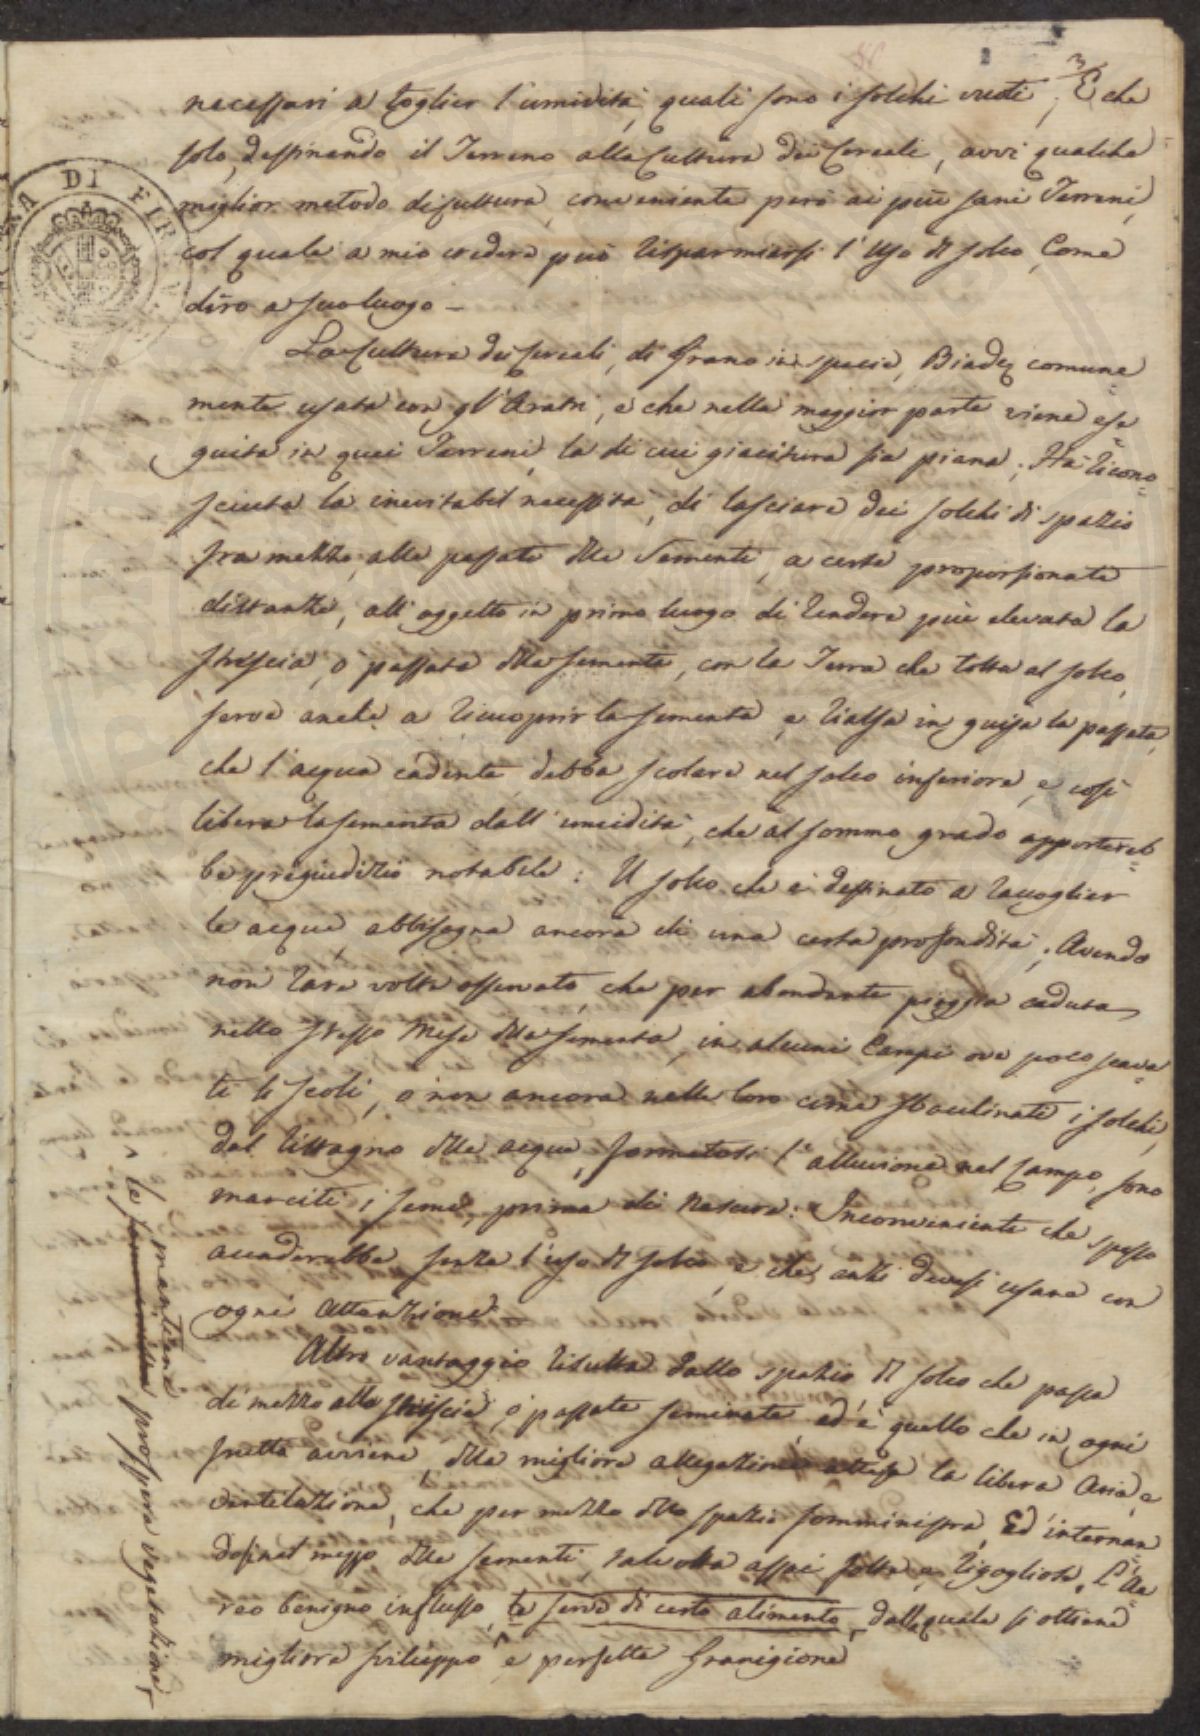 3
necessari a toglier l'umidità, quali sono i solchi vuoti, E che
solo, destinando il Terreno alla Cultura dei Cereali, avvi qualche
miglior metodo di cultura, conveniente però ai più sani Terreni,
col quale a mio credere può risparmiarsi l'Uso del solco, Come
dirò a suo luogo –
La Cultura dei Cereali, di Grano in specie, Biade comune=
mente usata con gl'Aratri, e che nella maggior parte viene ese=
guita in quei Terreni, la di cui giacitura sia piana; Hà ricono=
sciuta la inevitabil necessità, di lasciare dei solchi di spazio
frammezzo, alle passate delle Sementi, a certe proporzionate
distanze, all'oggetto in primo luogo di rendere più elevata la
striscia, ò passata della sementa, con la Terra che tolta al solco,
serve anche a ricuoprir la sementa, e rialsa in guisa la passata,
che l'acqua cadente debba scolare nel solco inferiore, e così
libera la sementa dall'umidità, che al sommo grado apportereb=
be pregiudizio notabile: Il solco che è destinato a raccoglier
le acque abbisogna ancora di una certa profondità; Avendo
non rare volte osservato, che per abondante pioggia caduta
nello stesso Mese della sementa, in alcuni Campi ove poco scava=
ti li scoli, o non ancora nelle loro cime sboccinati i solchi,
dal ristagno delle acque, formatosi l'alluvione nel Campo, sono
marciti i semi, prima di nascere: Inconveniente che spesso
accaderebbe senza l'uso del solco, e che anzi devesi usare con
ogni attenzione.
Altro vantaggio risulta dallo spazio del solco che passa
di mezzo alla striscia, o passate seminate, ed è quello che in ogni
fratta avviene, della migliore allegazione attesa la libera Aria, e
ventilazione, che per mezzo dello spazio somministra, Ed internan=
dosi nel mezzo delle sementi, talvolta assai folte, e rigogliose, L'Ae=
reo benigno influsso, le serve di certo alimento, dalle quale si ottiene
migliore sviluppo e perfetta Granigione
le mantiene prospera vegetazione,
NA DI FIR